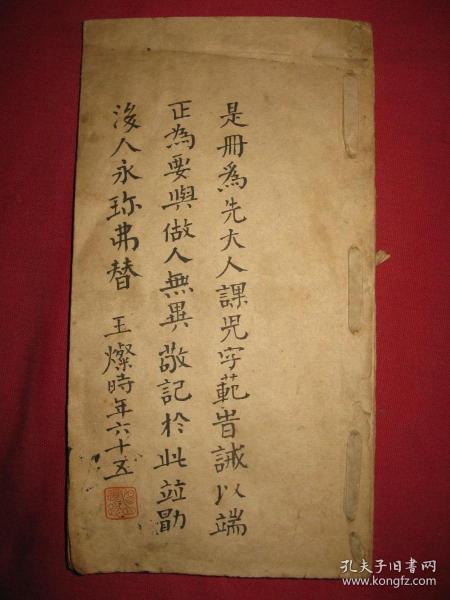 是冊為先大人課児字範昔誡以端
正為要與做人無異敬記於此竝勖
後人永珎弗替
王燦時年六十五
孔夫子旧书网
www.kongfz.com